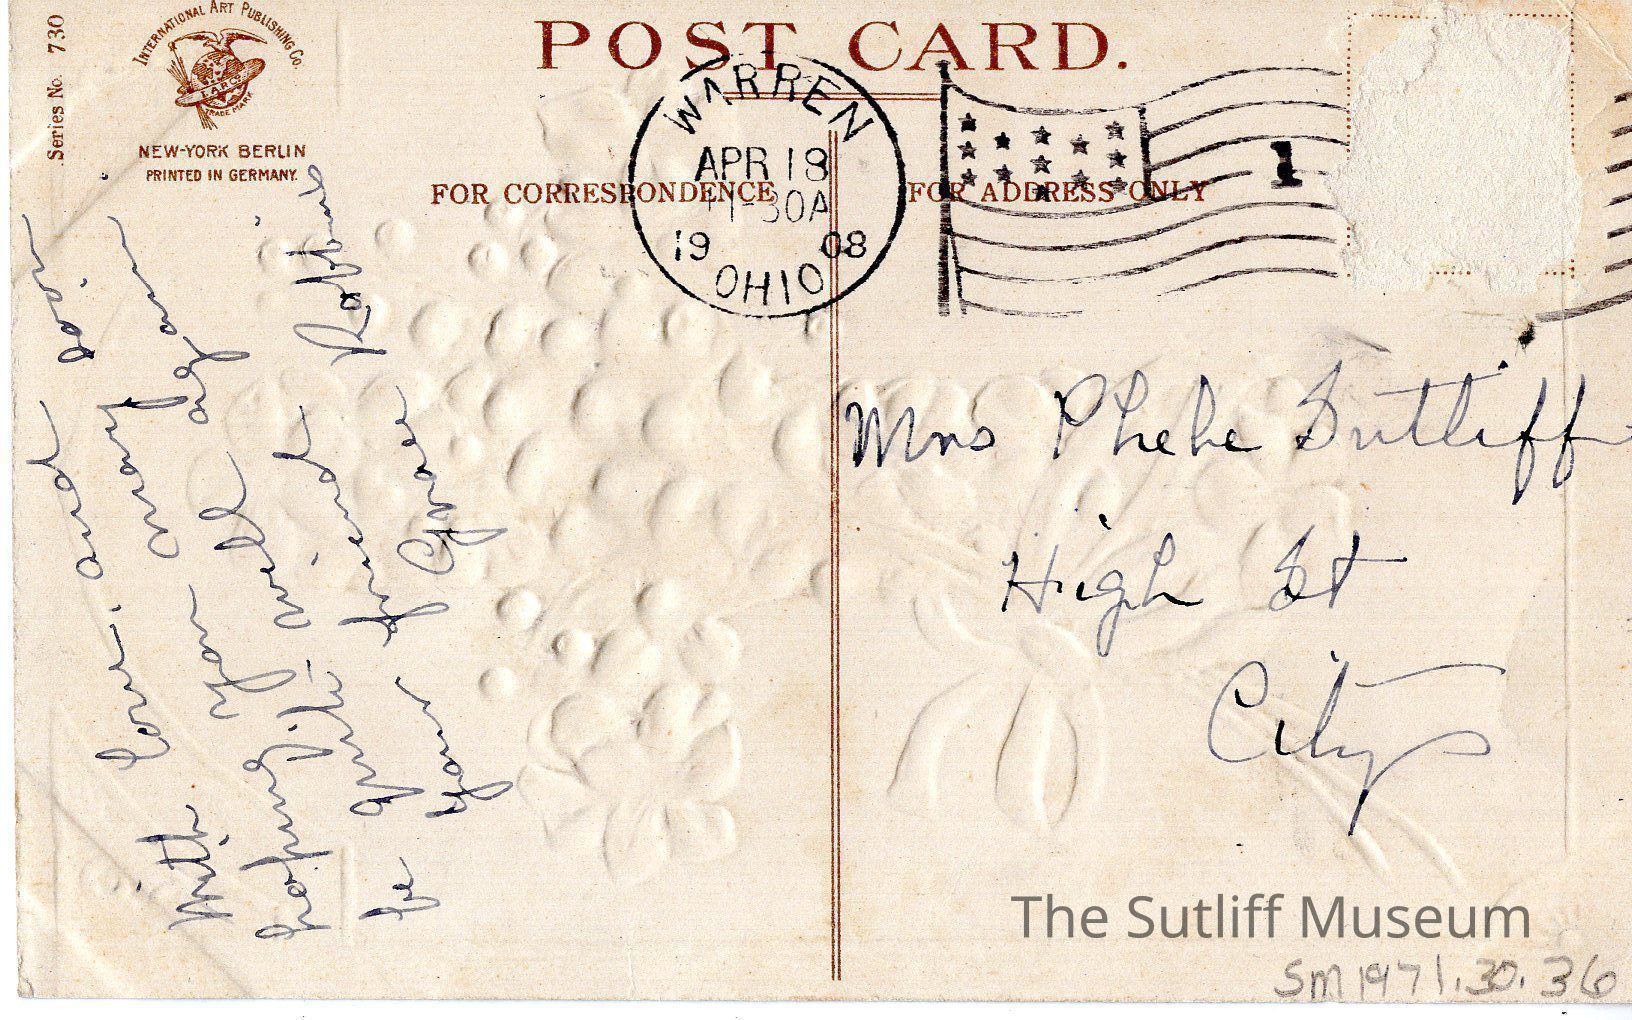 Series No. 730
INTERNATIONAL ART PUBLISHING CO.
I.A.P.CO.
TRADE MARK
NEW-YORK BERLIN
PRINTED IN GERMANY.
POST CARD.
FOR CORRESPONDENCE
FOR ADDRESS ONLY
WARREN
APR 18
11-30A
1908
OHIO
1
With love. and soon
hoping you
well again
be quite
Your friend
Grace Robbins
Mrs Phebe Sutliff
High St
City
The Sutliff Museum
SM1971.30.36